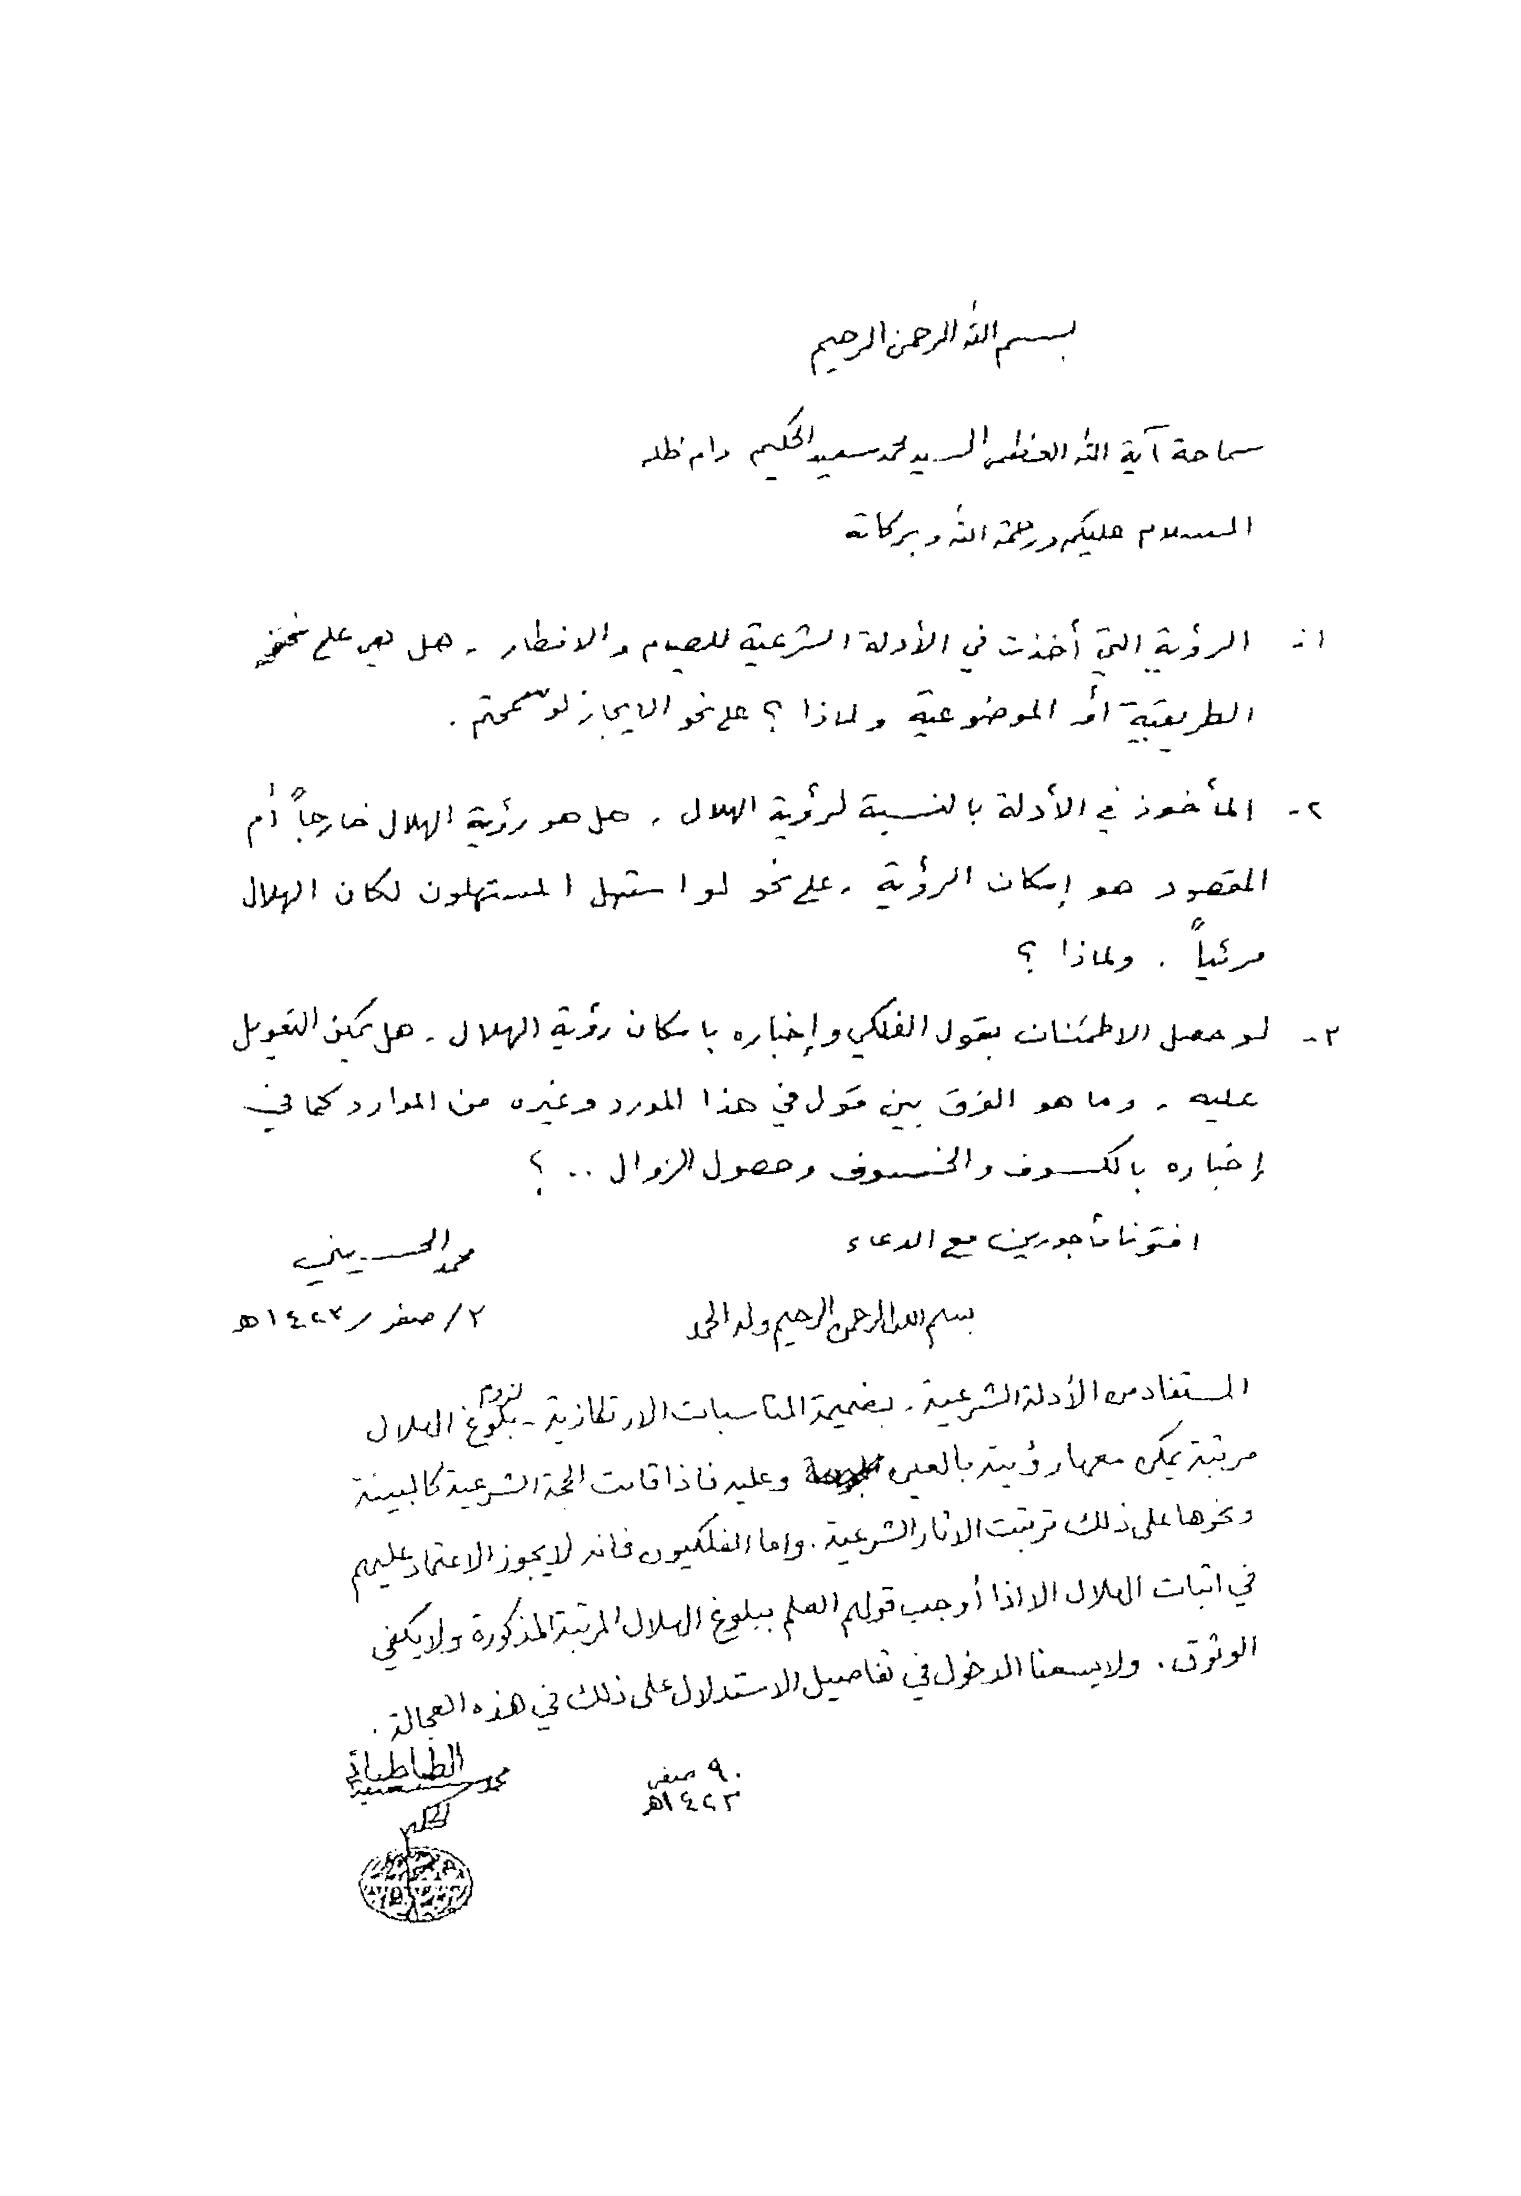 بسم الله الرحمن الرحيم
سماحة آية الله العظمى السيد محمد سعيد الحكيم دام ظله
السلام عليكم ورحمة الله وبركاته
١- الرؤية التي أخذت في الأدلة الشرعية للصيام والافطار، هل هي على نحو
الطريقية أو الموضوعية ولماذا؟ على نحو الايجاز لو سمحتم.
٢- المأخوذ في الأدلة بالنسبة لرؤية الهلال، هل هو رؤية الهلال خارجاً أم
المقصود هو إمكان الرؤية، على نحو لو استهل المستهلون لكان الهلال
مرئياً. ولماذا؟
٣- لو حصل الاطمئنان بقول الفلكي وإخباره بامكان رؤية الهلال، هل يمكن التعويل
عليه، وما هو الفرق بين قول في هذا المورد وغيره من الموارد كما في
إخباره بالكسوف والخسوف وحصول الزوال ..؟
افتونا مأجورين مع الدعاء
محمد الحسيني
٢/صفر/١٤٢٣هـ
بسم الله الرحمن الرحيم وله الحمد
المستفاد من الأدلة الشرعية - بضميمة المناسبات الارتكازية - لزوم بلوغ الهلال
مرتبة يمكن معها رؤيته بالعين وعليه فاذا قامت الحجة الشرعية كالبينة
ونحوها على ذلك ترتبت الاثار الشرعية. واما الفلكيون فانه لا يجوز الاعتماد عليهم
في اثبات الهلال الا اذا أوجب قولهم العلم ببلوغ الهلال المرتبة المذكورة ولا يكفي
الوثوق. ولا يسعنا الدخول في تفاصيل الاستدلال على ذلك في هذه العجالة.
٩ صفر
١٤٢٣هـ
محمد سعيد الطباطبائي
الحكيم